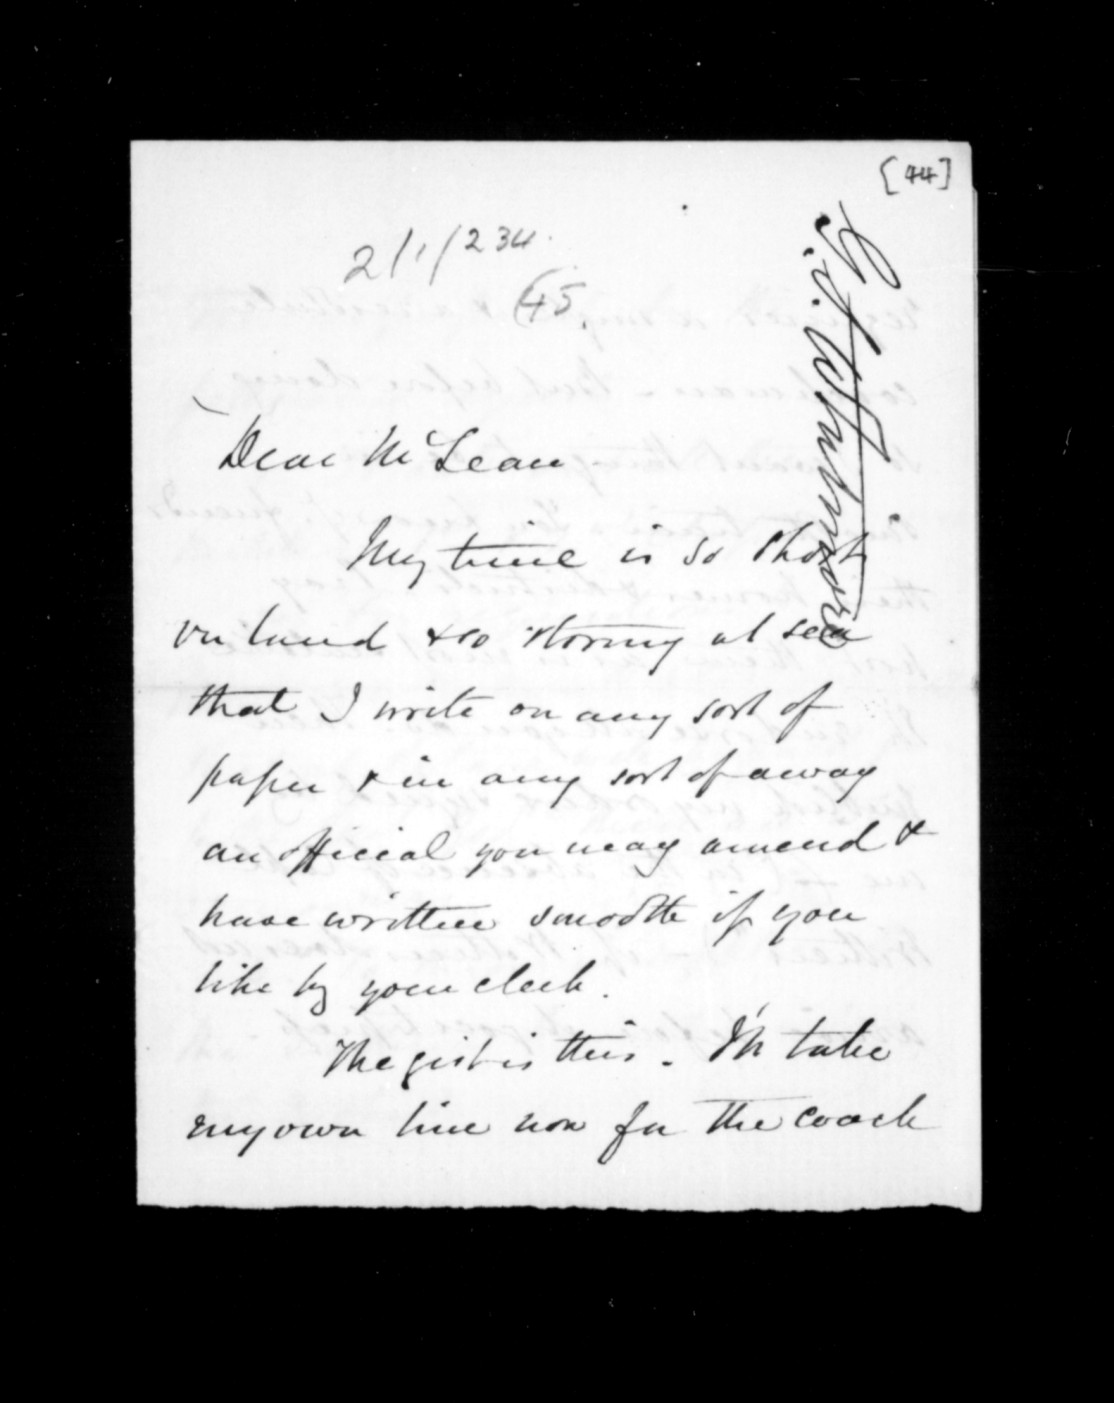 [44]
2/1/234.
45.
G. S. Whitmore
Dear McLean
My time is so short
on land & so stormy at sea
that I write on any sort of
paper & in any sort of a way
an official you may amend &
have written smooth if you
like by your clerk.
The gist is this. I'll take
my own line now for the coach